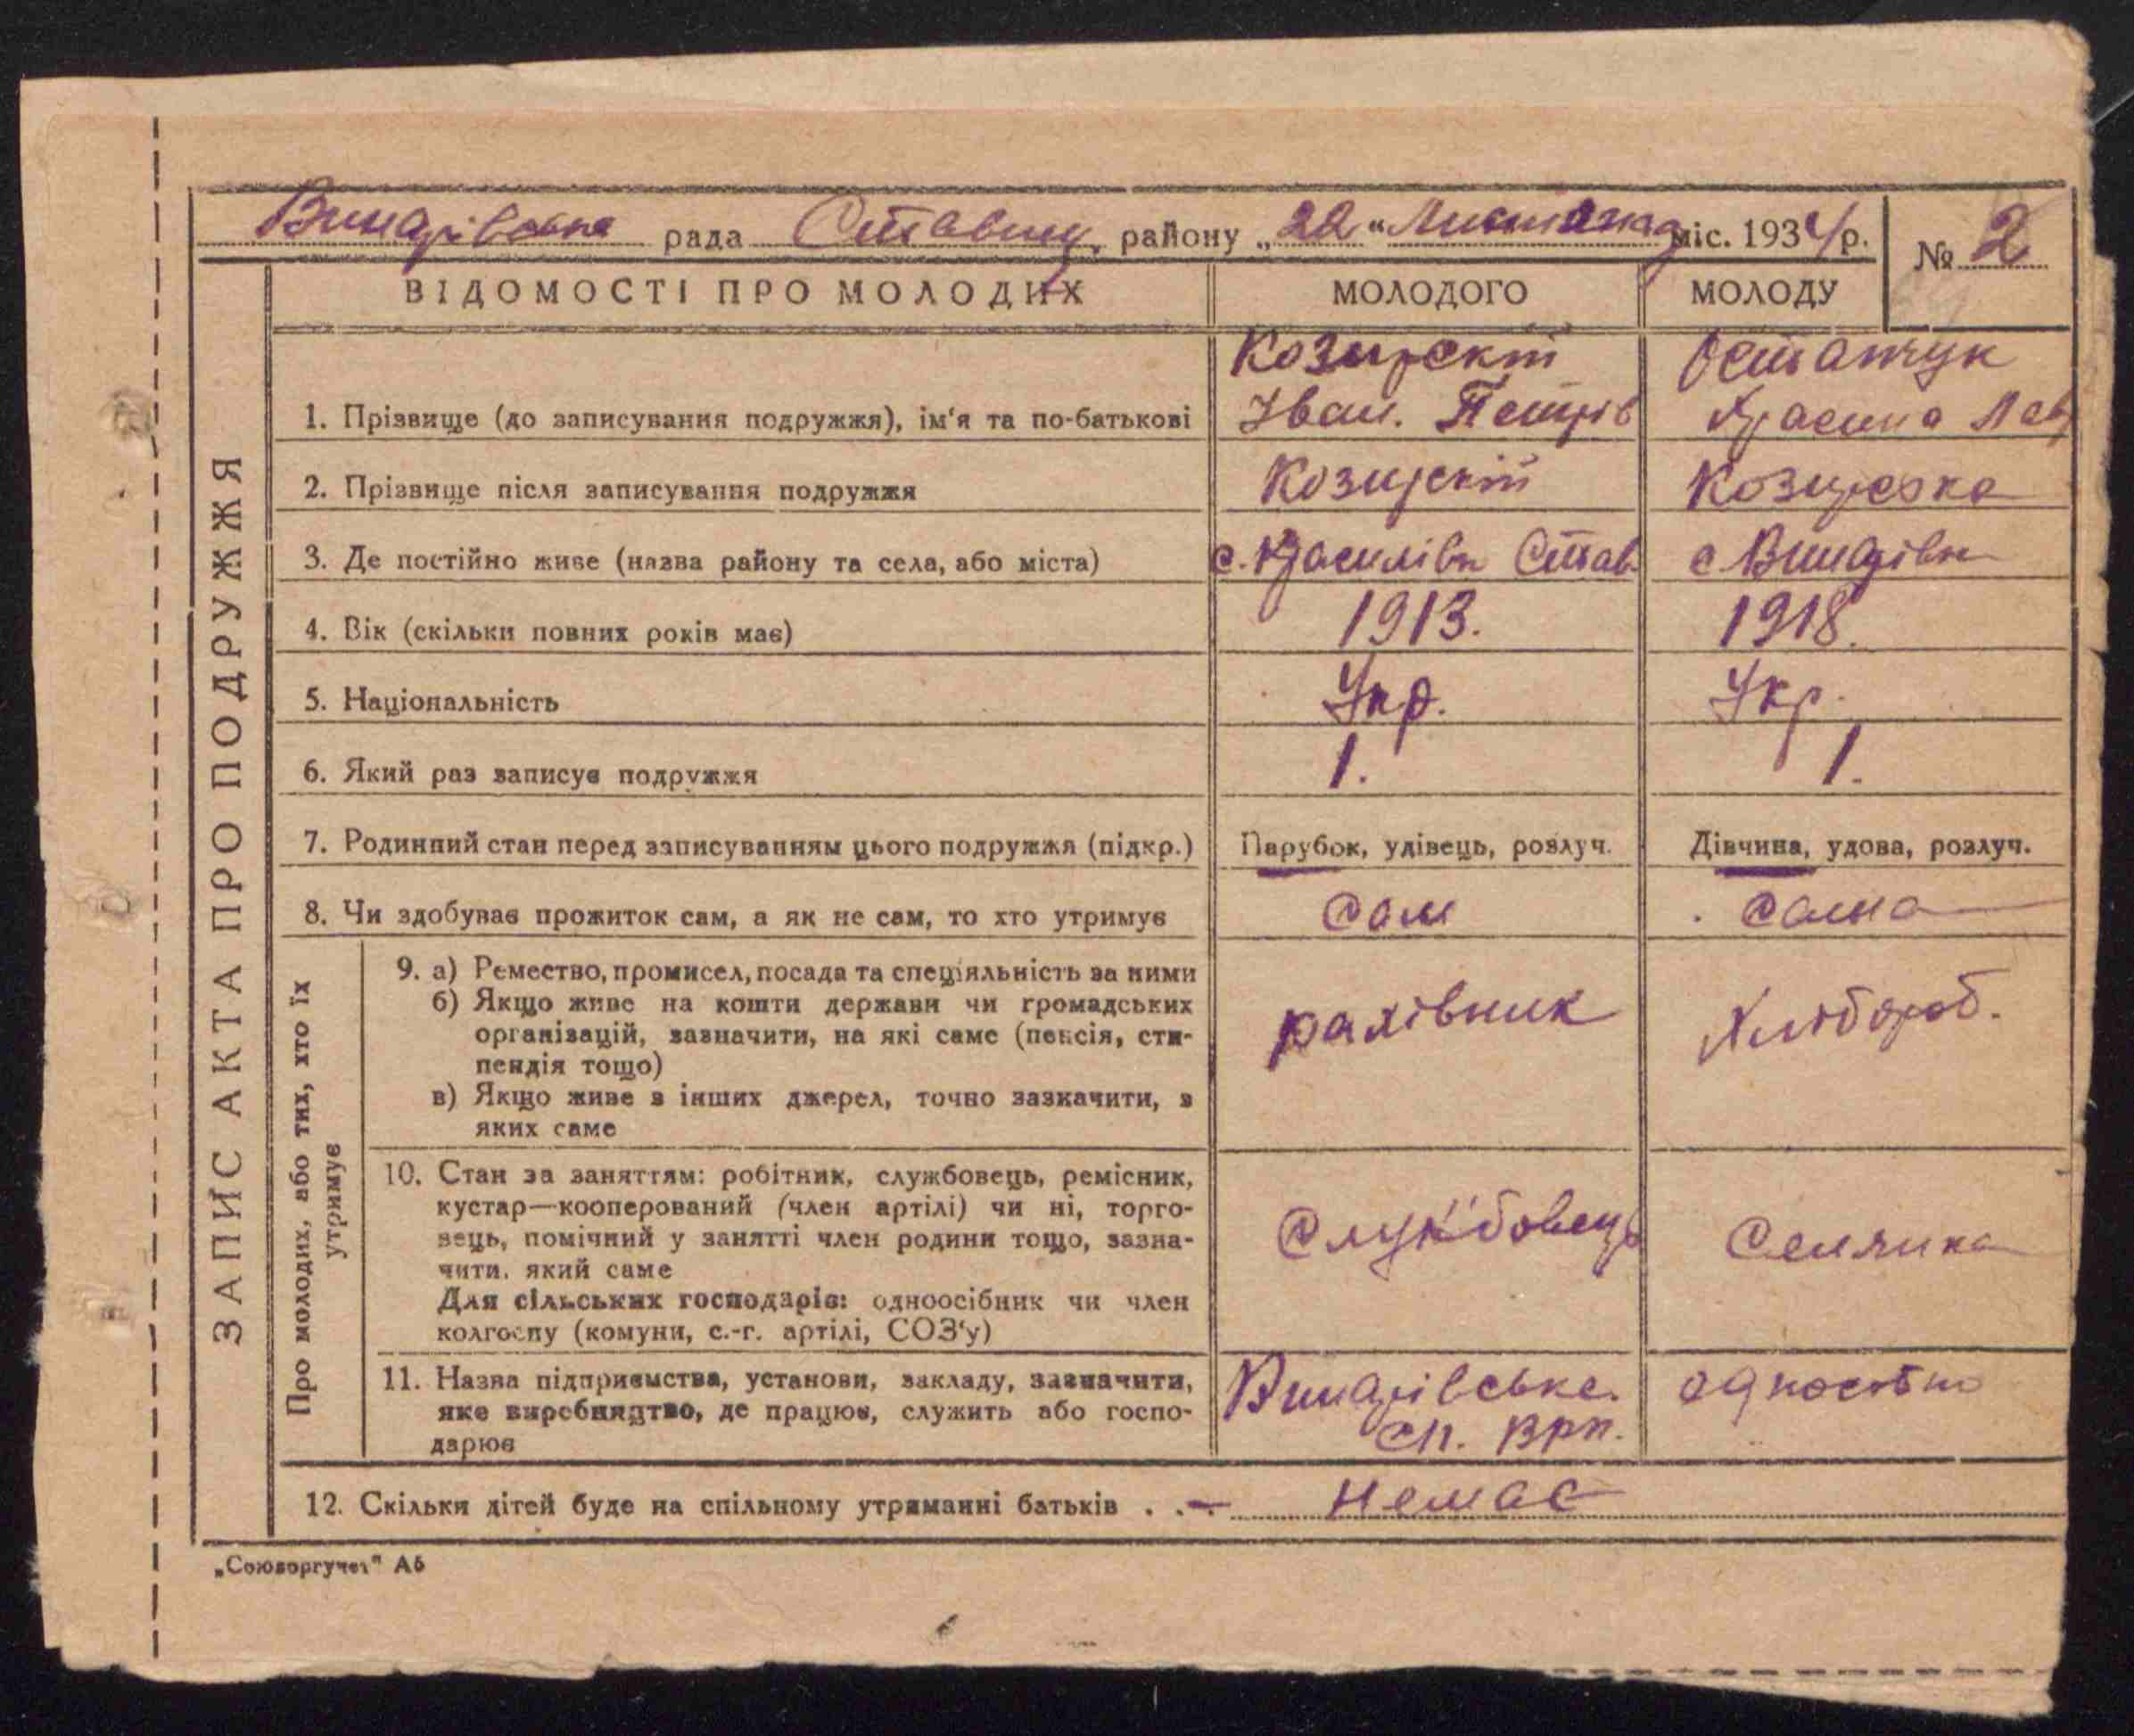 Винарівська рада Ставищ. району „22" Листопад міс. 1934 р.
№ 2
ВІДОМОСТІ ПРО МОЛОДИХ МОЛОДОГО МОЛОДУ
ЗАПИС АКТА ПРО ПОДРУЖЖЯ
Козирскій Остапчук
1. Прізвище (до записування подружжя), ім'я та по-батькові Іван. Петрів
2. Прізвище після записування подружжя Козирскій Козирска
3. Де постійно живе (назва району та села, або міста) с. Красилівк Став. с Винарівк
4. Вік (скільки повних років має) 1913. 1918.
5. Національність Укр. Укр.
6. Який раз записує подружжя 1. 1.
7. Родинний стан перед записуванням цього подружжя (підкр.) Парубок, удівець, розлуч. Дівчина, удова, розлуч.
8. Чи здобуває прожиток сам, а як не сам, то хто утримує Сам Сама
Про молодих, або тих, хто їх
утримує
9. а) Ремество, промисел, посада та спеціяльність за ними
б) Якщо живе на кошти держави чи громадських
організацій, зазначити, на які саме (пенсія, сти-
пендія тощо)
в) Якщо живе з інших джерел, точно зазначити, з
яких саме
рахівник Хлібороб.
10. Стан за заняттям: робітник, службовець, ремісник,
кустар—кооперований (член артілі) чи ні, торго-
вець, помічний у занятті член родини тощо, зазна-
чити, який саме
Для сільських господарів: одноосібник чи член
колгоспу (комуни, с.-г. артілі, СОЗ'у)
Службовець Селянка
11. Назва підприємства, установи, закладу, зазначити,
яке виробництво, де працює, служить або госпо-
дарює
Винарівське.
Сп. Врп.
12. Скільки дітей буде на спільному утриманні батьків . . — немає
„Союзоргучет" А5